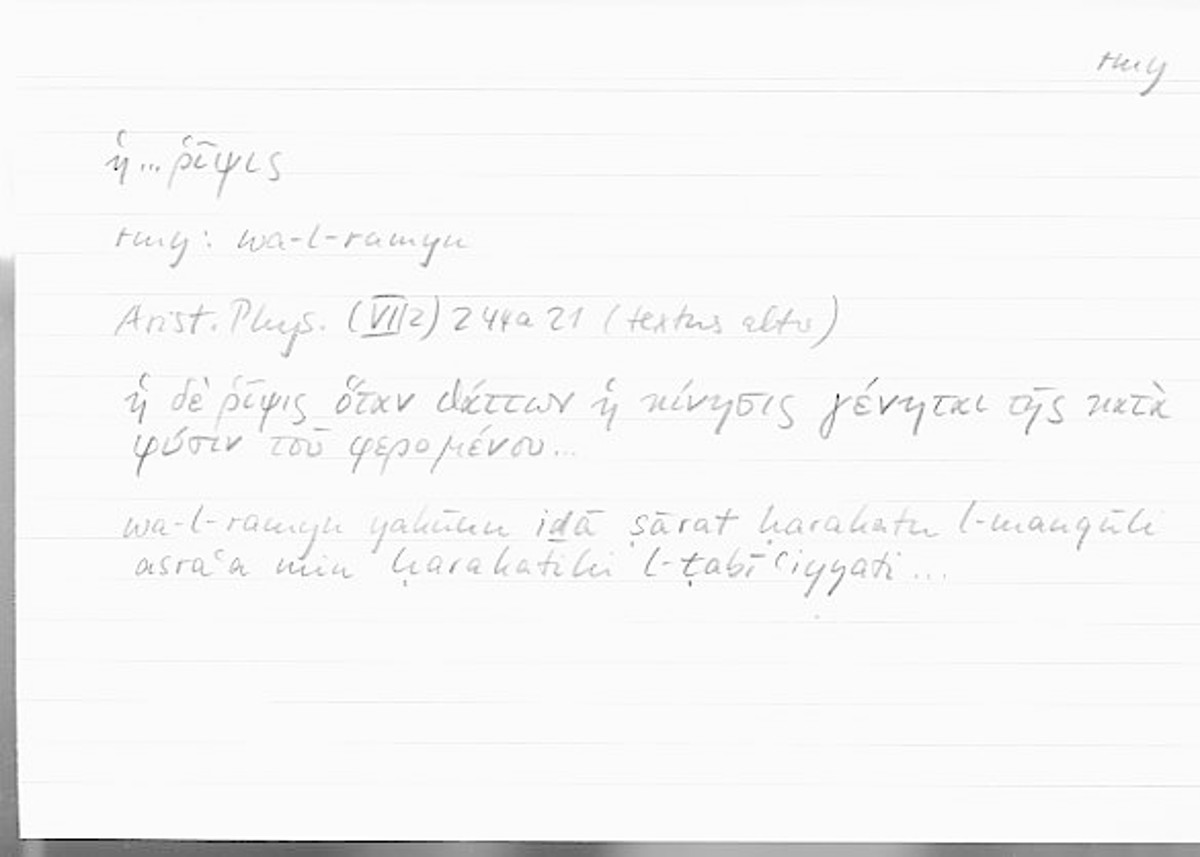 rmy
ἡ … ῥῖψις
rmy: wa-l-ramyu
Arist. Phys. (VII 2) 244a 21 (textus alter)
ἡ δὲ ῥῖψις ὅταν θάττων ἡ κίνησις γένηται τῆς κατὰ
φύσιν τοῦ φερομένου…
wa-l-ramyu yakūnu iḏā ṣārat ḥarakatu l-manqūli
asraʿa min ḥarakatihi l-ṭabīʿiyyati…